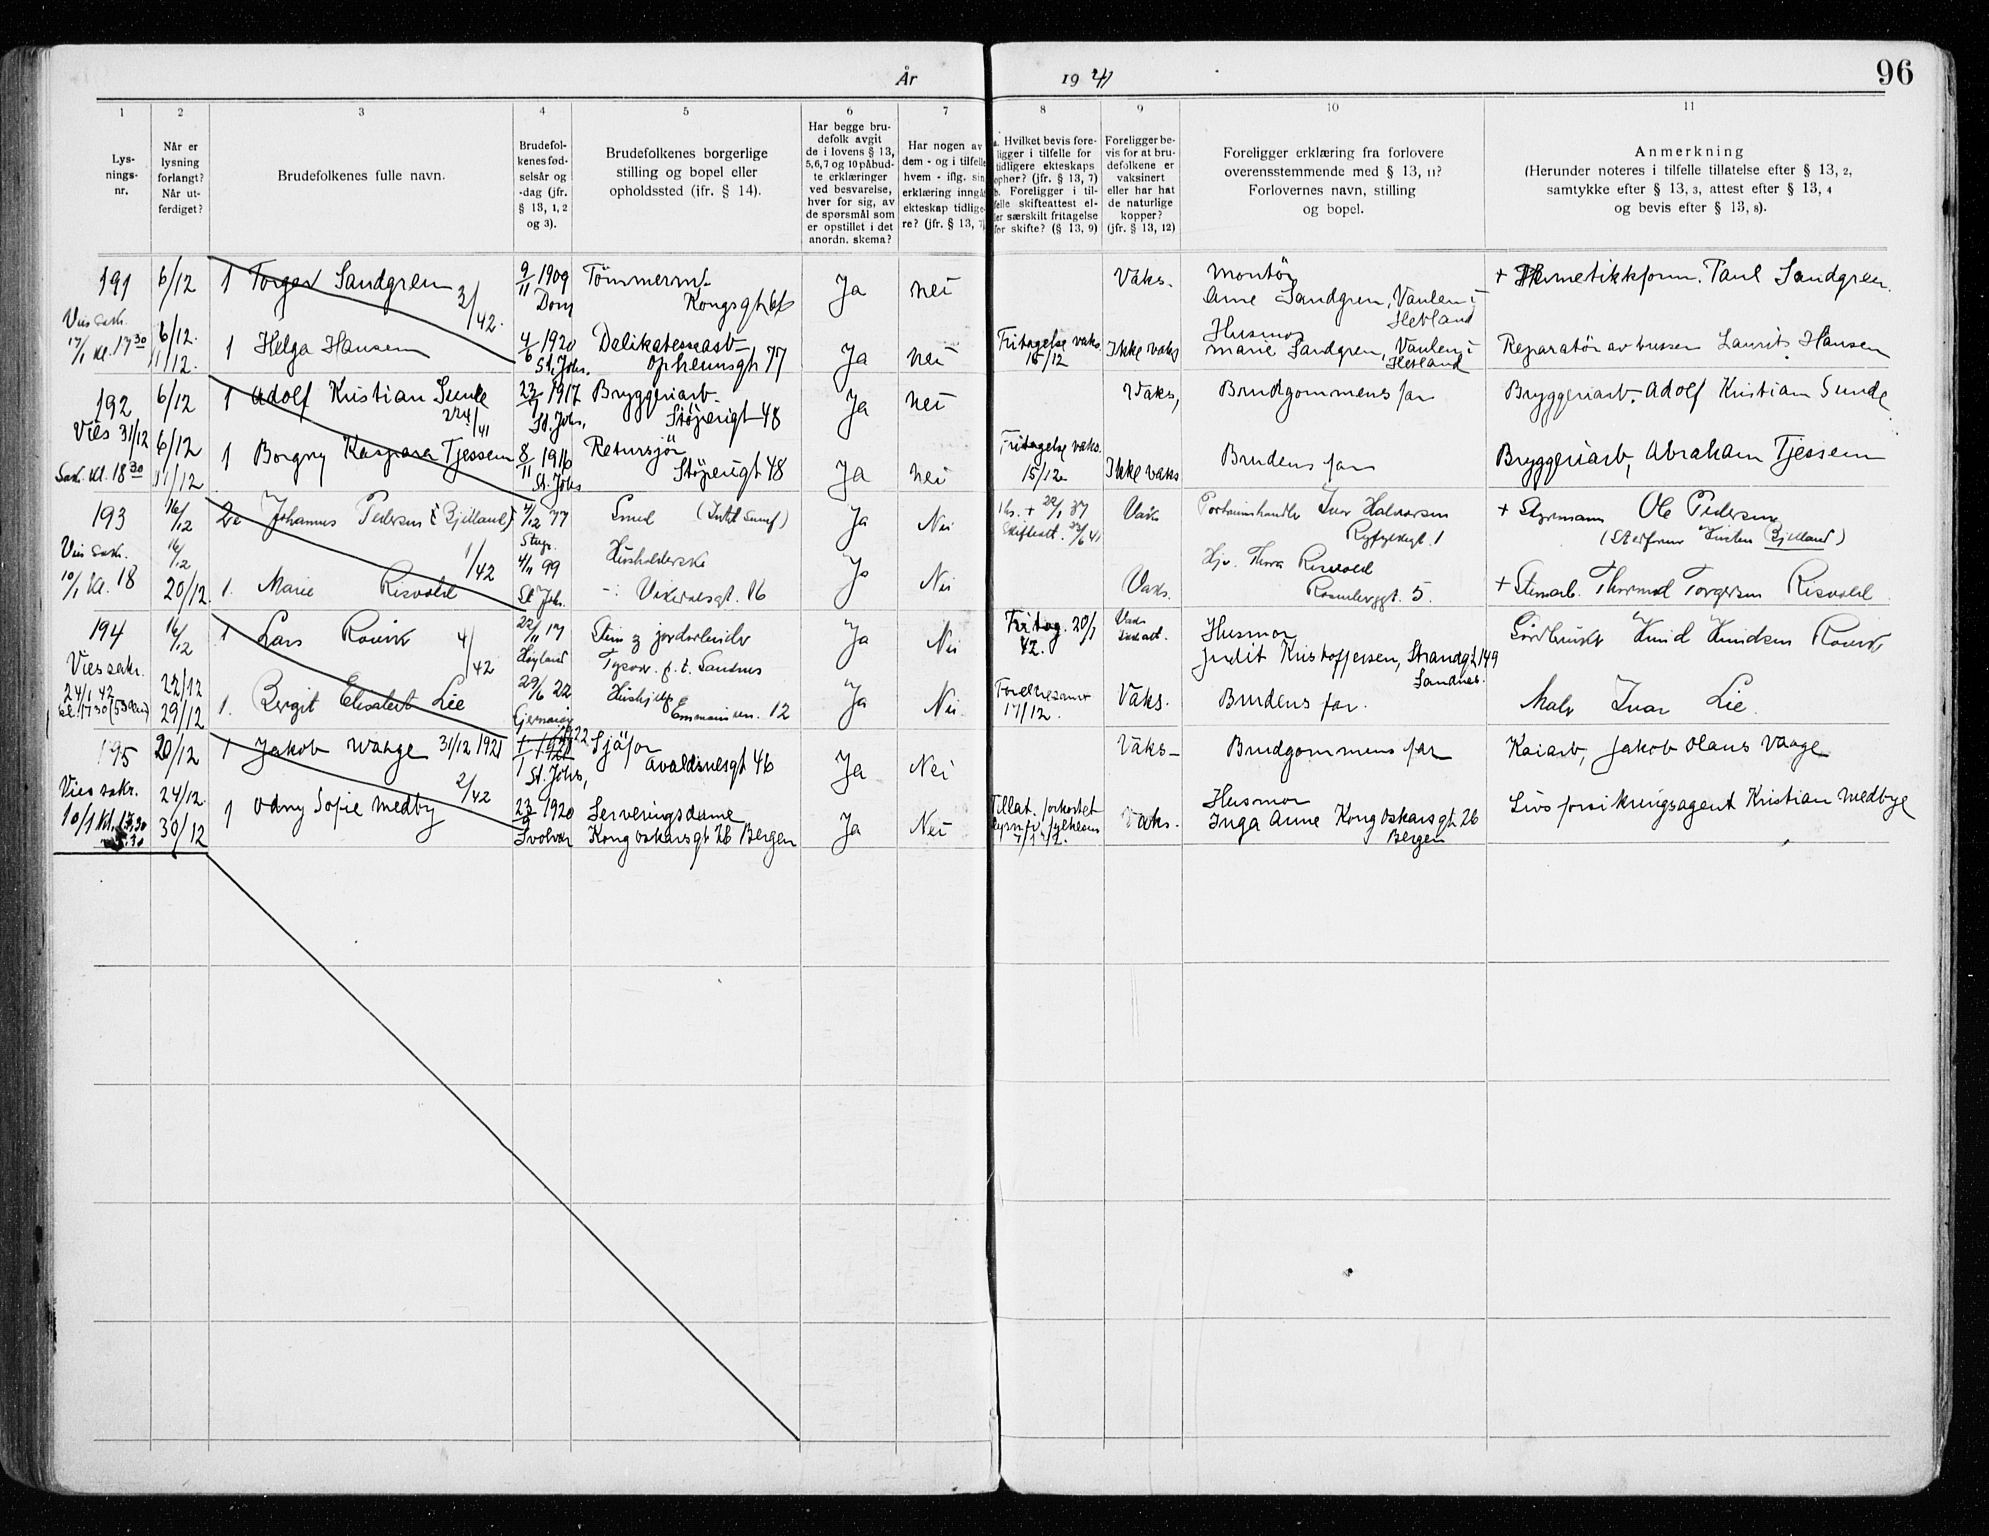 År 1941
96
1
2
3
4
5
6
7
8
9
10
11
Lys-
nings-
nr.
Når er
lysning
forlangt?
Når ut-
ferdiget?
Brudefolkenes fulle navn.
Brudefol-
kenes fød-
selsår og
-dag (jfr.
§ 13, 1, 2
og 3).
Brudefolkenes borgerlige
stilling og bopel eller
opholdssted (ifr. § 14).
Har begge bru-
defolk avgit
de i lovens § 13,
5,6,7 og 10 påbud-
te erklæringer
ved besvarelse,
hver for sig, av
de spørsmål som
er opstillet i det
anordn. skema?
Har nogen av
dem - og i tilfelle
hvem - iflg. sin
erklæring inngå
ekteskap tidlige-
re? (jfr. § 13, 7)
a. Hvilket bevis fore-
ligger i tilfelle for
tidligere ekteskaps
ophør? (jfr. § 13, 7)
b. Foreligger i til-
felle skifteattest el-
ler særskilt fritagelse
for skifte? (§ 13, 9)
Foreligger be-
vis for at bru-
defolkene er
vaksinert
eller har hat
de naturlige
kopper?
(jfr. § 13, 12)
Foreligger erklæring fra forlovere
overensstemmende med § 13, 11?
Forlovernes navn, stilling
og bopel.
Anmerkning
(Herunder noteres i tilfelle tillatelse efter § 13, 2,
samtykke efter § 13, 3, attest efter § 13, 4
og bevis efter § 13, 8).
191 6/12 1 Torger Sandgren 9/11 1909 Ja nei Vaks. Montør
3/42. Dom Arne Sandgren, Vaulen i
Hetland
+ Hermetikkform. Paul Sandgren.
17/1 kl. 17 30 6/12. 1 Helga Hansen 4/6 1920 Ja nei Fritagelse vaks. 15/12 Ikke vaks Husmor
11/12. St. Johs. Opheimsgt 77 Marie Sandgren, Vaulen i
Hetland
Reparatør av busser Laurits Hansen
192 6/12 1 Adolf Kristian Sunde 23/1 1917 Bryggeriarb. Ja nei Vaks, Brudgommens far Bryggeriarb. Adolf Kristian Sunde
St. Johs. Støperigt 48
Vies 31/12 6/12 1 Borgny Kaspara Tjessem 8/11 1916 Ja nei Fritagelse vaks. 15/12 Ikke vaks Brudens far Bryggeriarb, Abraham Tjessem
kl. 18 30 11/12 St. Johs Støperigt 48
193 16/12 Johannes Pedersen (Bjelland) 4/12 77 Smed Ja Nei Vaks Ivar Halvorsen + Styrmann Ole Pedersen
Ryfylkegt. 1
16/12 1/42 4/11 99 Husholderske Ja Nei Vaks. Thora Risvold
10/1 kl. 18 20/12 1. Marie Risvold St. Joh. 16 Rosenberggt. 5. + Stenarb. Torgersen Risvold
194 16/12 1 Lars 4/42 22/11 17 Ja Nei Fritag. 20/1 42. Vaks Husmor Gårdbruker Knud Knudsen
Høyland Sandnes Judit Kristoffersen, Strandgt 149
Sandnes.
Vies sakr.
24/1 42 22/12 1. Bergit Elisabet Lie 29/6 22 Hushjelp Ja Nei. 17/12. Vaks. Brudens far. Maler Ivar Lie
29/12 12
195 20/12 1 Jakob Waage 31/12 1921 1922 Sjåfør Ja Nei Vaks- Brudgommens far Kaiarb, Jakob Olaus Vaage
St. Johs, Avaldsnesgt 46
Vies sakr. 24/12. 2/42
10/1 kl. 30/12 1 Odny Sofie Medby 23/9 1920 Serveringsdame Ja Nei Tillat. Vaks. Husmor Livsforsikringsagent Kristian Medbye
Svolvær Kong Oskarsgt 26 Bergen Inga Anne Kong Oskarsgt. 26
Bergen